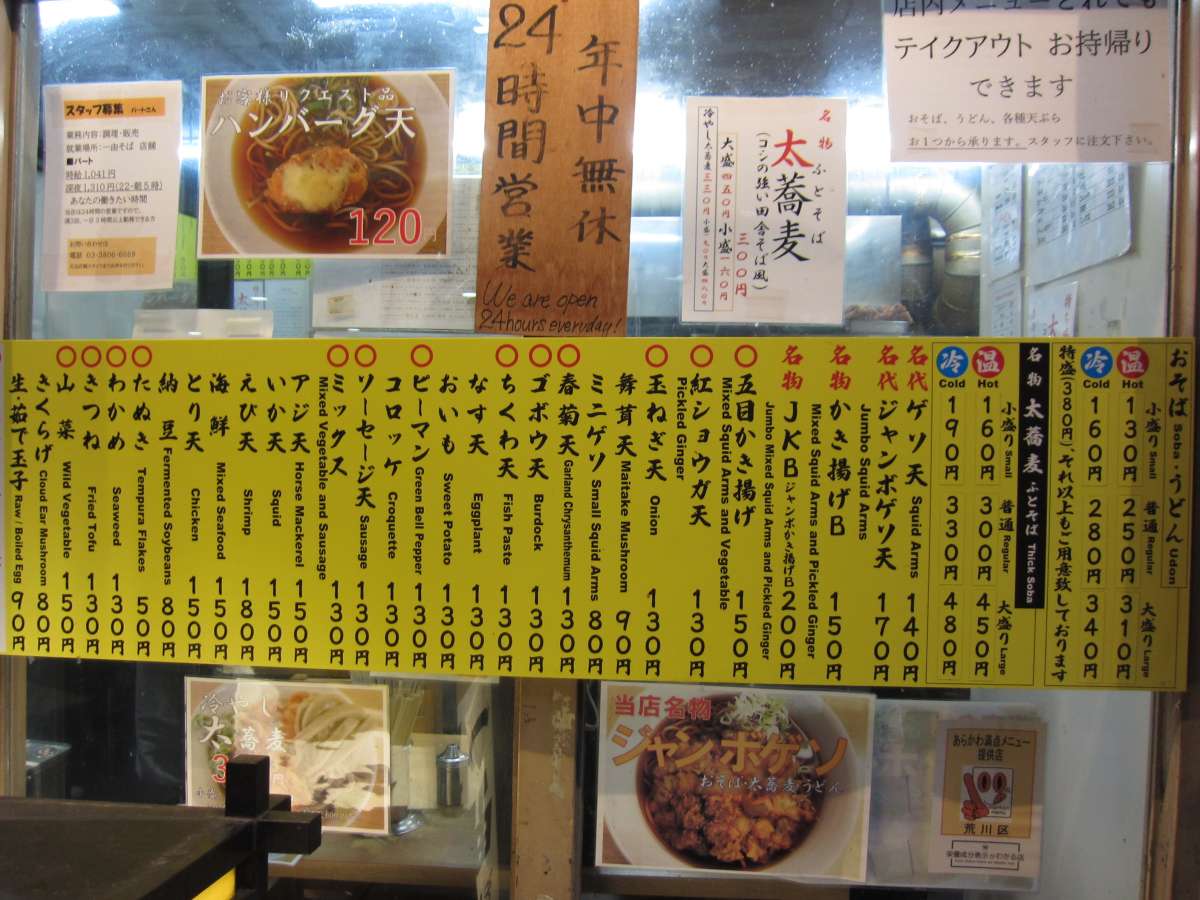 スタッフ募集 パートさん
業務内容:調理・販売
就業場所:一由そば 店舗
■パート
時給1,041円
深夜1,310円(22-朝5時)
あなたの働きたい時間
お問い合わせは
電話 03-3806-6669
お客様リクエスト品
ハンバーグ天
120
年中無休
24時間営業
We are open
24hours everyday!
名物 ふとそば
太蕎麦
(コシの強い田舎そば風)
三〇〇円
大盛四五〇円 小盛一六〇円
冷やし太蕎麦三三〇円 小盛一九〇円 大盛四八〇円
店内メニューどれでも
テイクアウト お持帰り
できます
おそば、うどん、各種天ぷら
お1つから承ります。スタッフに注文下さい。
おそば Soba・うどん Udon
温 Hot 小盛り Small 130円 普通 Regular 250円 大盛り Large 310円
冷 Cold 160円 280円 340円
特盛(380円)、それ以上もご用意致しております
名物 太蕎麦 ふとそば Thick Soba
温 Hot 小盛り Small 160円 普通 Regular 300円 大盛り Large 450円
冷 Cold 190円 330円 480円
名代 ゲソ天 Squid Arms 140円
名代 ジャンボゲソ天 170円
Jumbo Squid Arms
名物 かき揚げB 150円
Mixed Squid Arms and Pickled Ginger
名物 JKB ジャンボかき揚げB 200円
Jumbo Mixed Squid Arms and Pickled Ginger
〇五目かき揚げ 150円
Mixed Squid Arms and Vegetable
〇紅ショウガ天 130円
Pickled Ginger
〇玉ねぎ天 Onion 130円
舞茸天 Maitake Mushroom 90円
ミニゲソ Small Squid Arms 80円
〇春菊天 Garland Chrysanthemum 130円
〇ゴボウ天 Burdock 130円
〇ちくわ天 Fish Paste 130円
なす天 Eggplant 130円
おいも Sweet Potato 130円
〇ピーマン Green Bell Pepper 130円
コロッケ Croquette 130円
〇ソーセージ天 Sausage 130円
〇ミックス 130円
Mixed Vegetable and Sausage
アジ天 Horse Mackerel 150円
いか天 Squid 150円
えび天 Shrimp 180円
海鮮 Mixed Seafood 150円
とり天 Chicken 150円
納豆 Fermented Soybeans 80円
〇たぬき Tempura Flakes 50円
〇わかめ Seaweed 130円
〇きつね Fried Tofu 130円
〇山菜 Wild Vegetable 150円
きくらげ Cloud Ear Mushroom 80円
生・茹で玉子 Raw / Boiled Egg 90円
冷やし
太蕎麦
当店名物
ジャンボゲソ
おそば・太蕎麦うどん
あらかわ満点メニュー
提供店
荒川区
栄養成分表示がわかる店